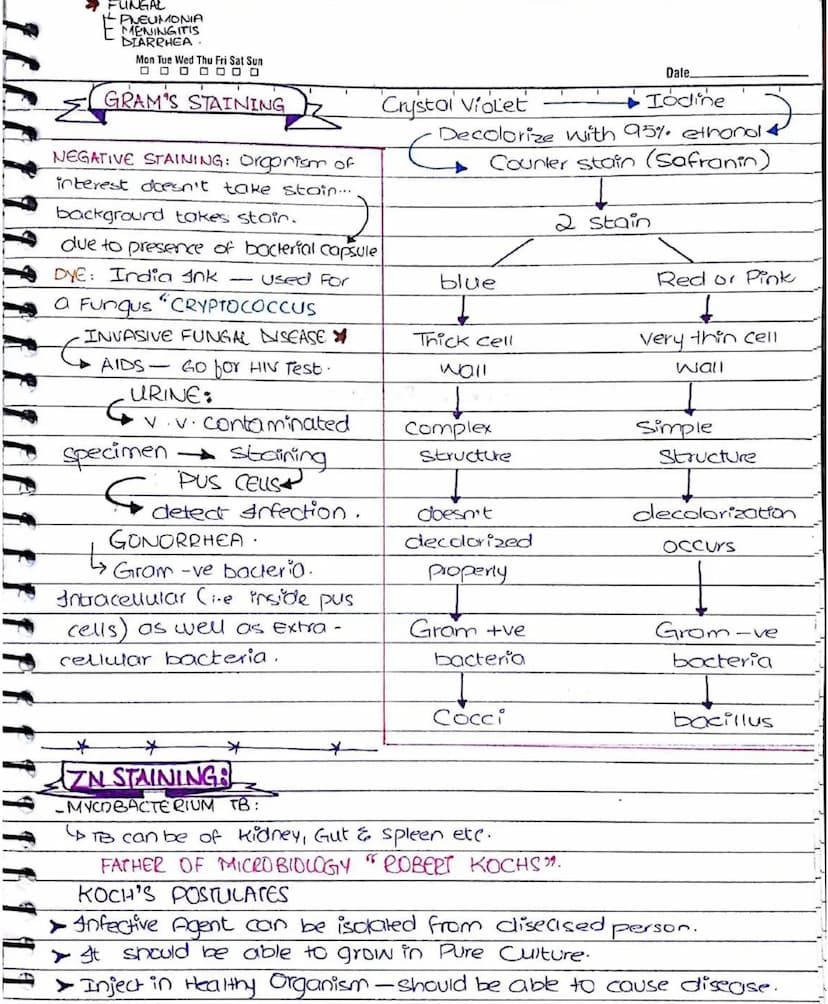 FUNGAL
PNEUMONIA
MENINGITIS
DIARRHEA.
Mon Tue Wed Thu Fri Sat Sun
Date
GRAM'S STAINING
Crystal Violet → Iodine
Decolorize with 95% ethanol
Counter stain (Safranin)
2 stain
blue
Thick cell
wall
complex
structure
doesn't
decolorized
properly
Gram +ve
bacteria
Cocci
Red or Pink
very thin cell
wall
Simple
Structure
decolorization
occurs
Gram -ve
bacteria
bacillus
NEGATIVE STAINING: Organism of
interest doesn't take stain...
background takes stain.
due to presence of bacterial capsule
DYE: India Ink — used for
a fungus "CRYPTOCOCCUS
INVASIVE FUNGAL DISEASE
AIDS — Go for HIV Test.
URINE:
V.V. contaminated
specimen → staining
PUS CELLS
detect infection.
GONORRHEA.
Gram -ve bacteria.
Intracellular (i.e inside pus
cells) as well as Extra-
cellular bacteria.
ZN STAINING:
-MYCOBACTERIUM TB:
TB can be of Kidney, Gut & Spleen etc.
FATHER OF MICROBIOLOGY "ROBERT KOCHS".
KOCH'S POSTULATES
➤ Infective Agent can be isolated from diseased person.
➤ It should be able to grow in Pure Culture.
➤ Inject in Healthy Organism — should be able to cause disease.